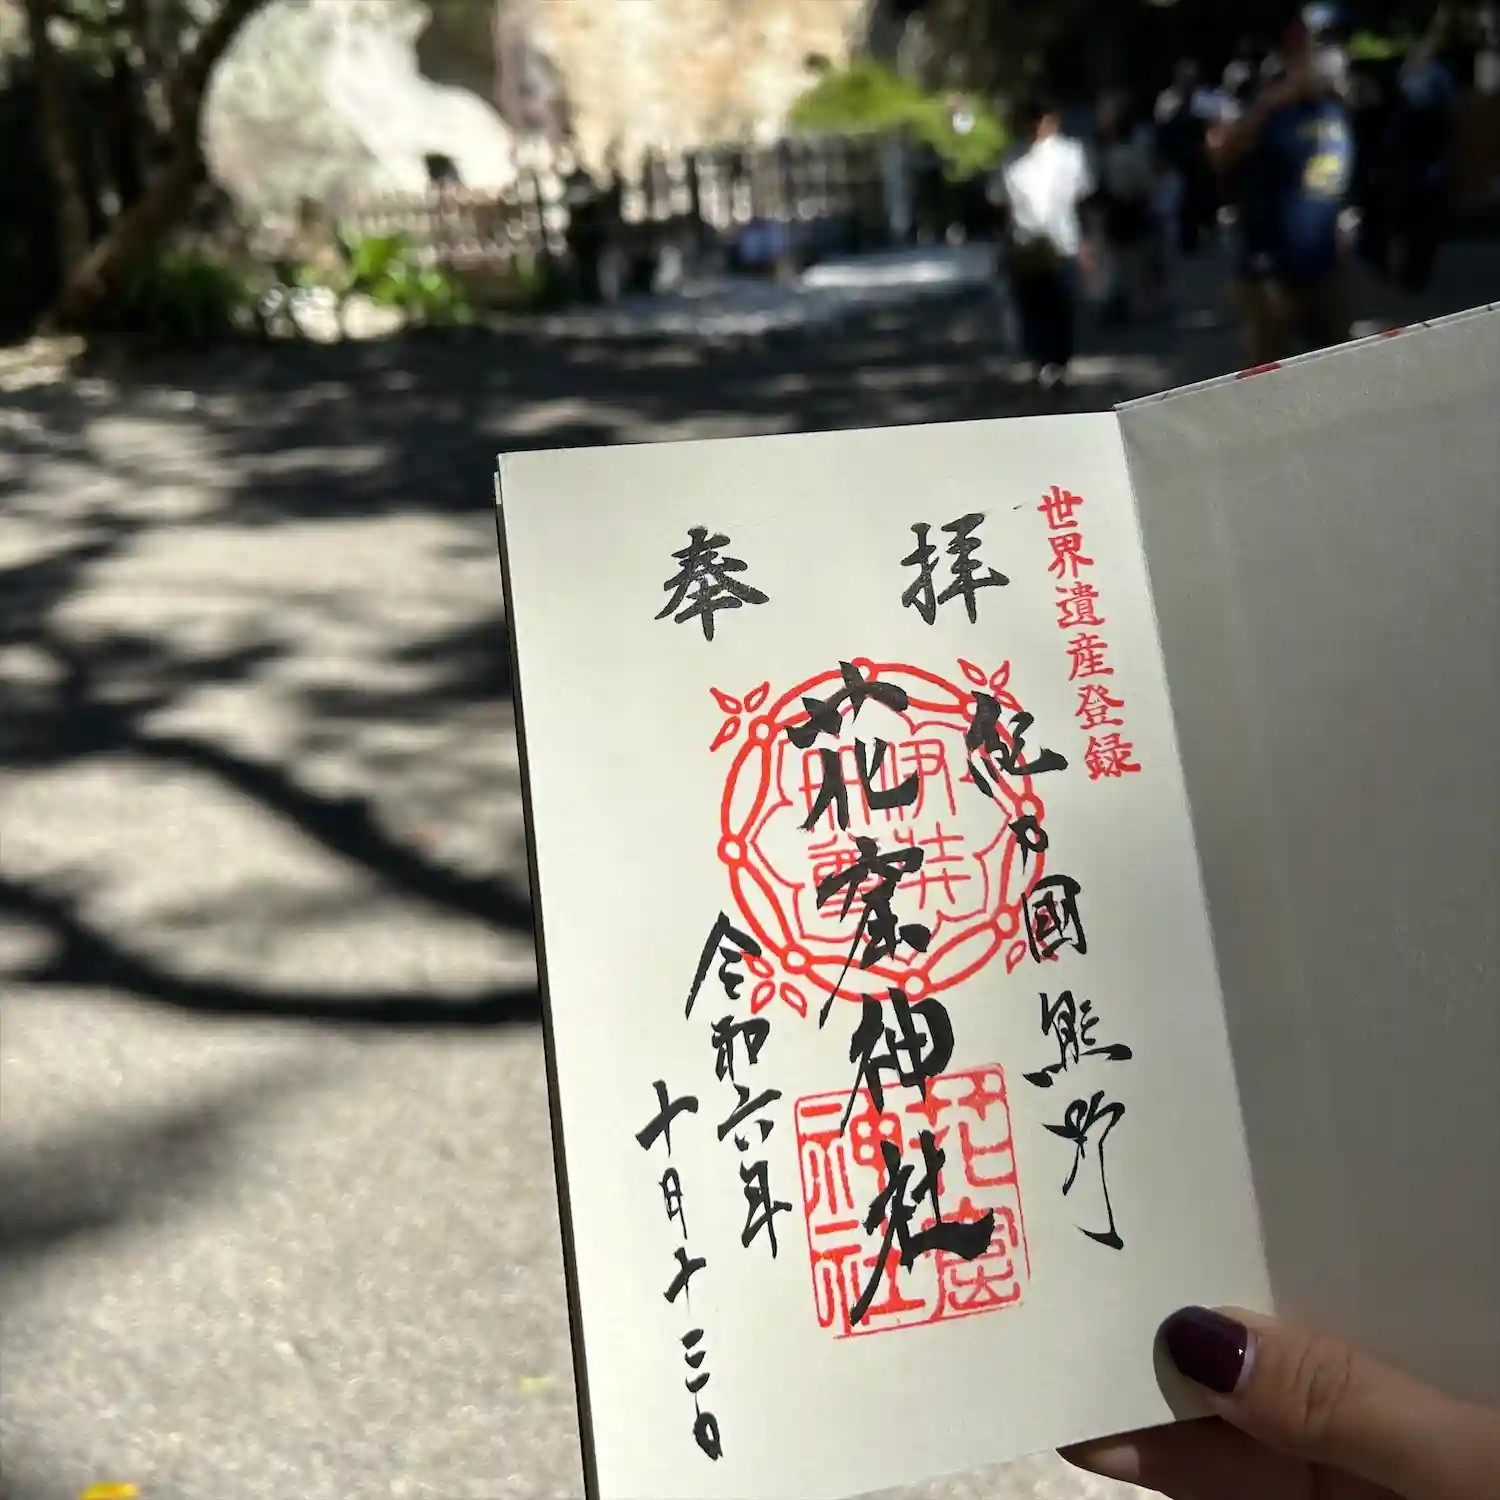 世界遺産登録
奉拝
紀力國熊野
花窟神社
伊弉冊尊
花窟神社
令和六年
十月十三日